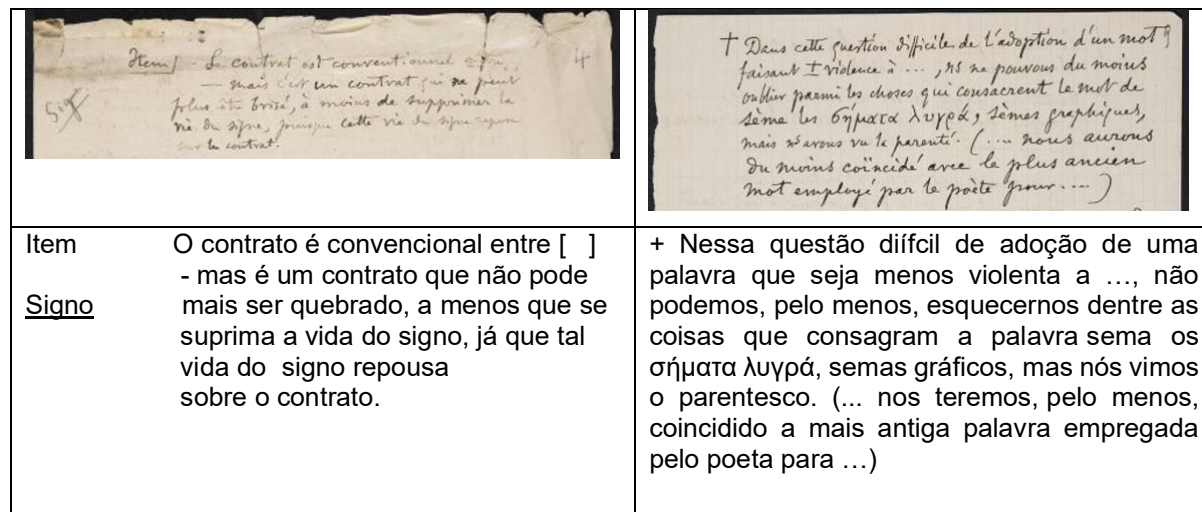 Item) - Le contrat est conventionnel entre
4
Sig
— mais c'est un contrat qui ne peut
plus être brisé, à moins de supprimer la
vie du signe, puisque cette vie du signe repose
sur le contrat.
† Dans cette question difficile de l'adoption d'un mot
faisant ± violence à ..., ns ne pouvons du moins
oublier parmi les choses qui consacrent le mot de
sème les σήματα λυγρά, sèmes graphiques,
mais ns avons vu la parenté. (... nous aurons
du moins coïncidé avec le plus ancien
mot employé par le poète pour ....)
Item O contrato é convencional entre [ ]
- mas é um contrato que não pode
Signo mais ser quebrado, a menos que se
suprima a vida do signo, já que tal
vida do signo repousa
sobre o contrato.
+ Nessa questão diífcil de adoção de uma
palavra que seja menos violenta a …, não
podemos, pelo menos, esquecernos dentre as
coisas que consagram a palavra sema os
σήματα λυγρά, semas gráficos, mas nós vimos
o parentesco. (... nos teremos, pelo menos,
coincidido a mais antiga palavra empregada
pelo poeta para …)